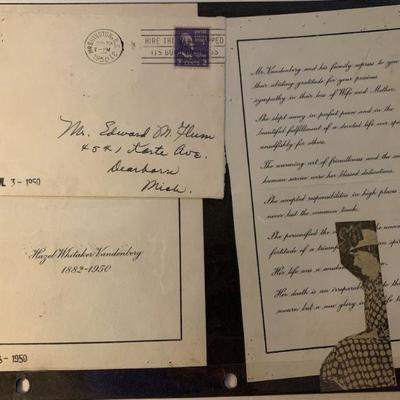 WASHINGTON, D.C.
1950
HIRE THE
ITS GOOD
3 CENTS 3
Mr. Edward M. Flum
4541 Korte Ave.
Dearborn
Mich.
3 - 1950
Hazel Whitaker Vandenberg
1882-1950
- 1950
Mr. Vandenberg and his family express to you
their abiding gratitude for your precious
sympathy in their loss of Wife and Mother.
She slept away in perfect peace and in the
beautiful fulfillment of a devoted life ever spent
unselfishly for others.
The warming art of friendliness and the
human service were her blessed dedications.
She accepted responsibilities in high places
never lost the common touch.
She personified the
fortitude of a
Her life was a
Her death is an irreparable
means but a new glory in